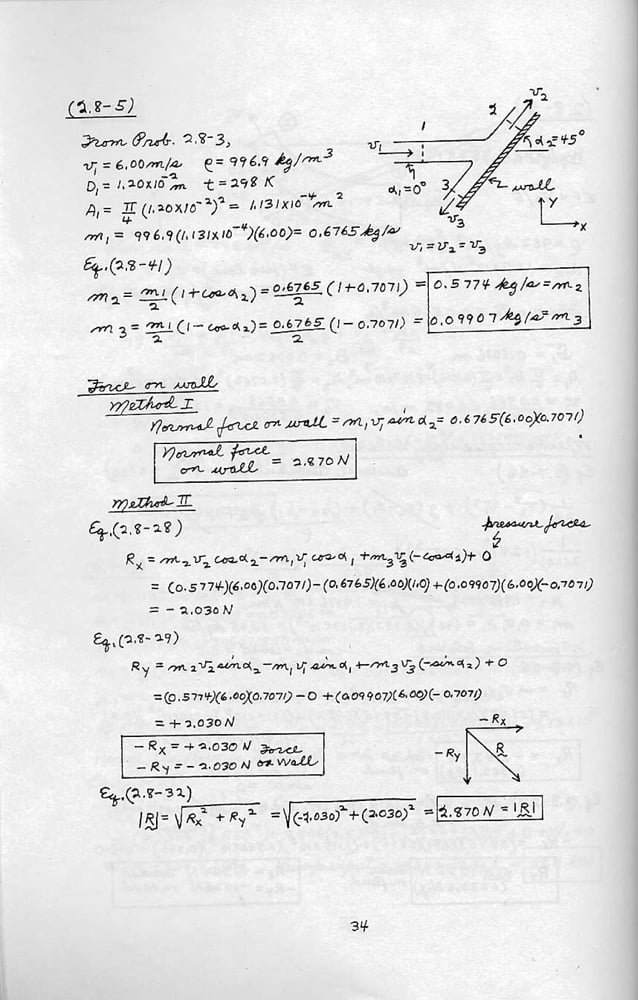 (2.8-5)
From Prob. 2.8-3,
v₁ = 6.00 m/s ρ = 996.9 kg/m³
D₁ = 1.20x10⁻² m t = 298 K
A₁ = π/4 (1.20x10⁻²)² = 1.131x10⁻⁴ m²
m₁ = 996.9(1.131x10⁻⁴)(6.00) = 0.6765 kg/s
1
2
3
v₁
v₂
v₃
α₂=45°
α₁=0°
wall
y
x
v₁ = v₂ = v₃
Eq. (2.8-41)
m₂ = m₁/2 (1+cos α₂) = 0.6765/2 (1+0.7071) = 0.5774 kg/s = m₂
m₃ = m₁/2 (1-cos α₂) = 0.6765/2 (1-0.7071) = 0.09907 kg/s = m₃
Force on wall
Method I
Normal force on wall = m₁v₁ sin α₂ = 0.6765(6.00)(0.7071)
Normal force
on wall = 2.870 N
Method II
Eq. (2.8-28)
pressure forces
Rₓ = m₂v₂ cos α₂ - m₁v₁ cos α₁ + m₃v₃(-cos α₂) + 0
= (0.5774)(6.00)(0.7071) - (0.6765)(6.00)(1.0) + (0.09907)(6.00)(-0.7071)
= - 2.030 N
Eq. (2.8-29)
Ry = m₂v₂ sin α₂ - m₁v₁ sin α₁ + m₃v₃(-sin α₂) + 0
= (0.5774)(6.00)(0.7071) - 0 + (0.09907)(6.00)(-0.7071)
= + 2.030 N
- Rₓ = + 2.030 N Force
- Ry = - 2.030 N on Wall
-Rₓ
-Ry
R
Eq. (2.8-32)
|R| = √(Rₓ² + Ry²) = √((-2.030)² + (2.030)²) = 2.870 N = |R|
34